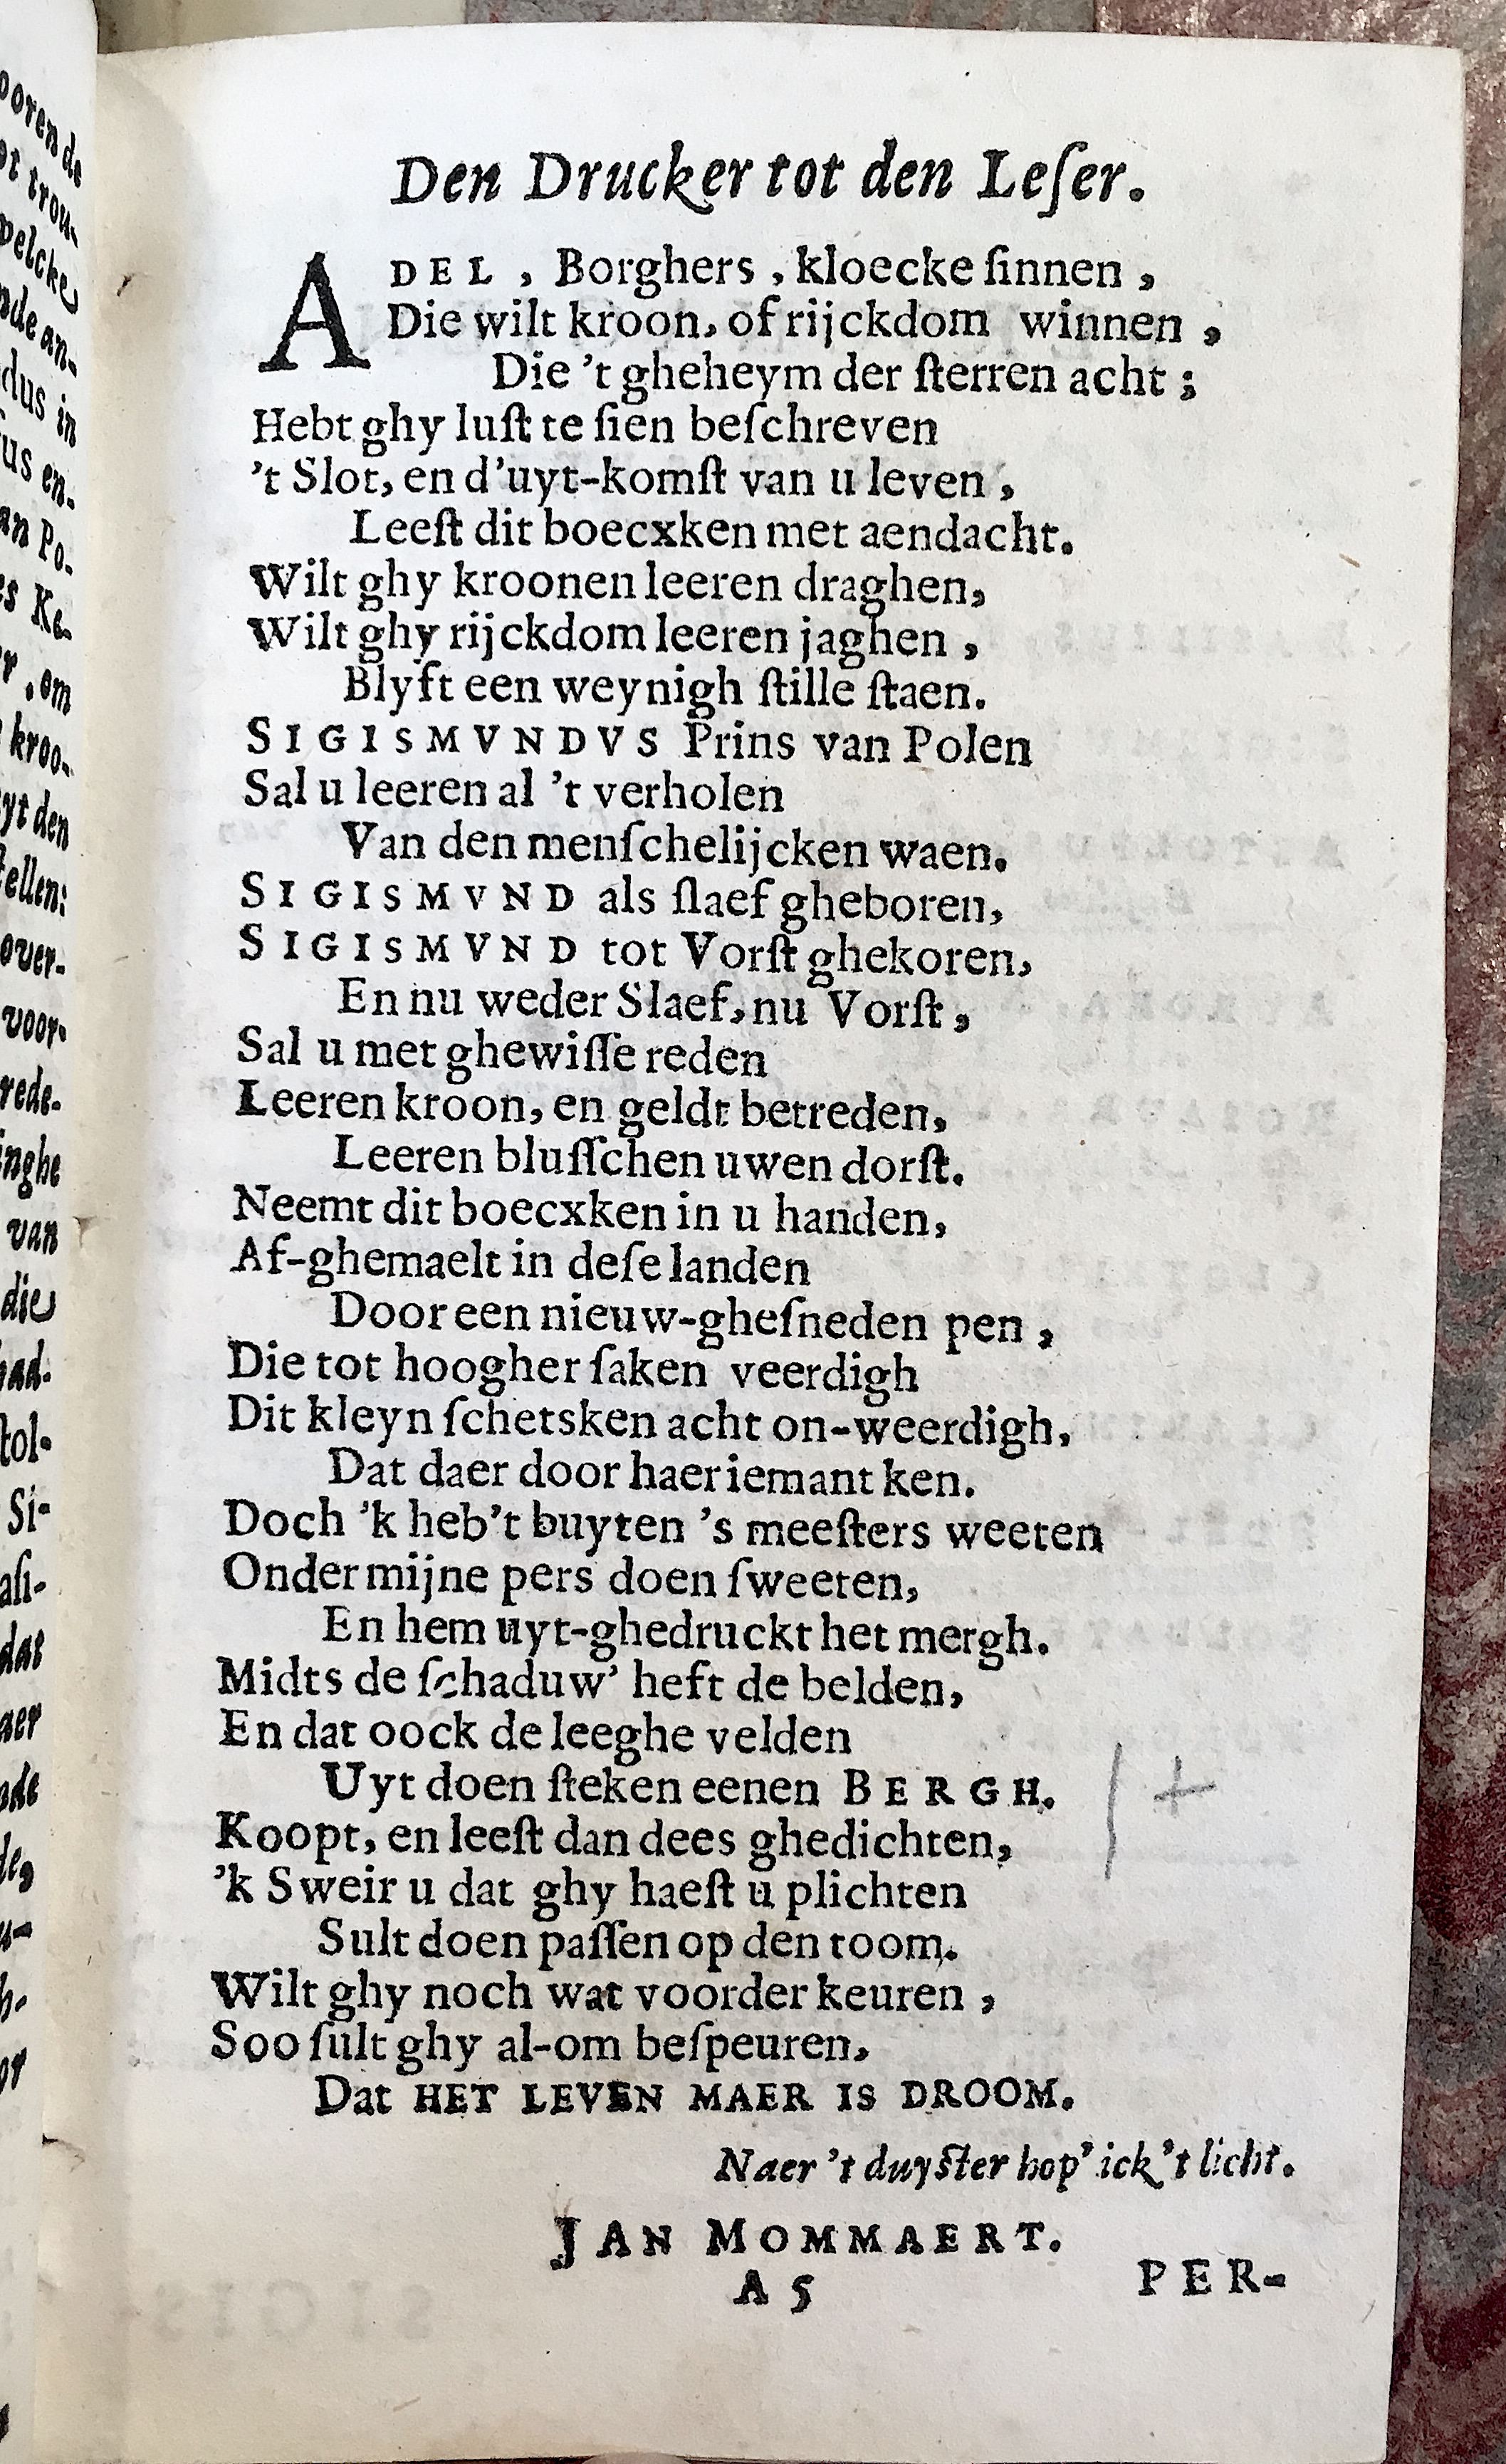 Den Drucker tot den Leſer.
ADEL, Borghers, kloecke ſinnen,
Die wilt kroon, of rijckdom winnen,
Die 't gheheym der ſterren acht;
Hebt ghy luſt te ſien beſchreven
't Slot, en d'uyt-komſt van u leven,
Leeſt dit boecxken met aendacht.
Wilt ghy kroonen leeren draghen,
Wilt ghy rijckdom leeren jaghen,
Blyft een weynigh ſtille ſtaen.
SIGISMVNDVS Prins van Polen
Sal u leeren al 't verholen
Van den menſchelijcken waen.
SIGISMVND als ſlaef gheboren,
SIGISMVND tot Vorſt ghekoren,
En nu weder Slaef, nu Vorſt,
Sal u met ghewiſſe reden
Leeren kroon, en geldt betreden,
Leeren bluſſchen uwen dorſt.
Neemt dit boecxken in u handen,
Af-ghemaelt in deſe landen
Door een nieuw-gheſneden pen,
Die tot hoogher ſaken veerdigh
Dit kleyn ſchetsken acht on-weerdigh,
Dat daer door haer iemant ken.
Doch 'k heb't buyten 's meeſters weeten
Onder mijne pers doen ſweeten,
En hem uyt-ghedruckt het mergh.
Midts de ſchaduw' heft de belden,
En dat oock de leeghe velden
Uyt doen ſteken eenen BERGH.
Koopt, en leeſt dan dees ghedichten,
'k Sweir u dat ghy haeſt u plichten
Sult doen paſſen op den toom.
Wilt ghy noch wat voorder keuren,
Soo ſult ghy al-om beſpeuren,
Dat HET LEVEN MAER IS DROOM.
Naer 't duyſter hop' ick 't licht.
JAN MOMMAERT.
A 5
PER-